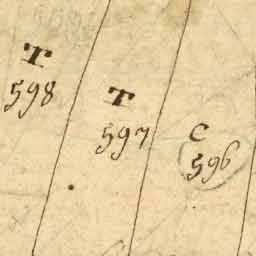 T
598
T
597
C
596